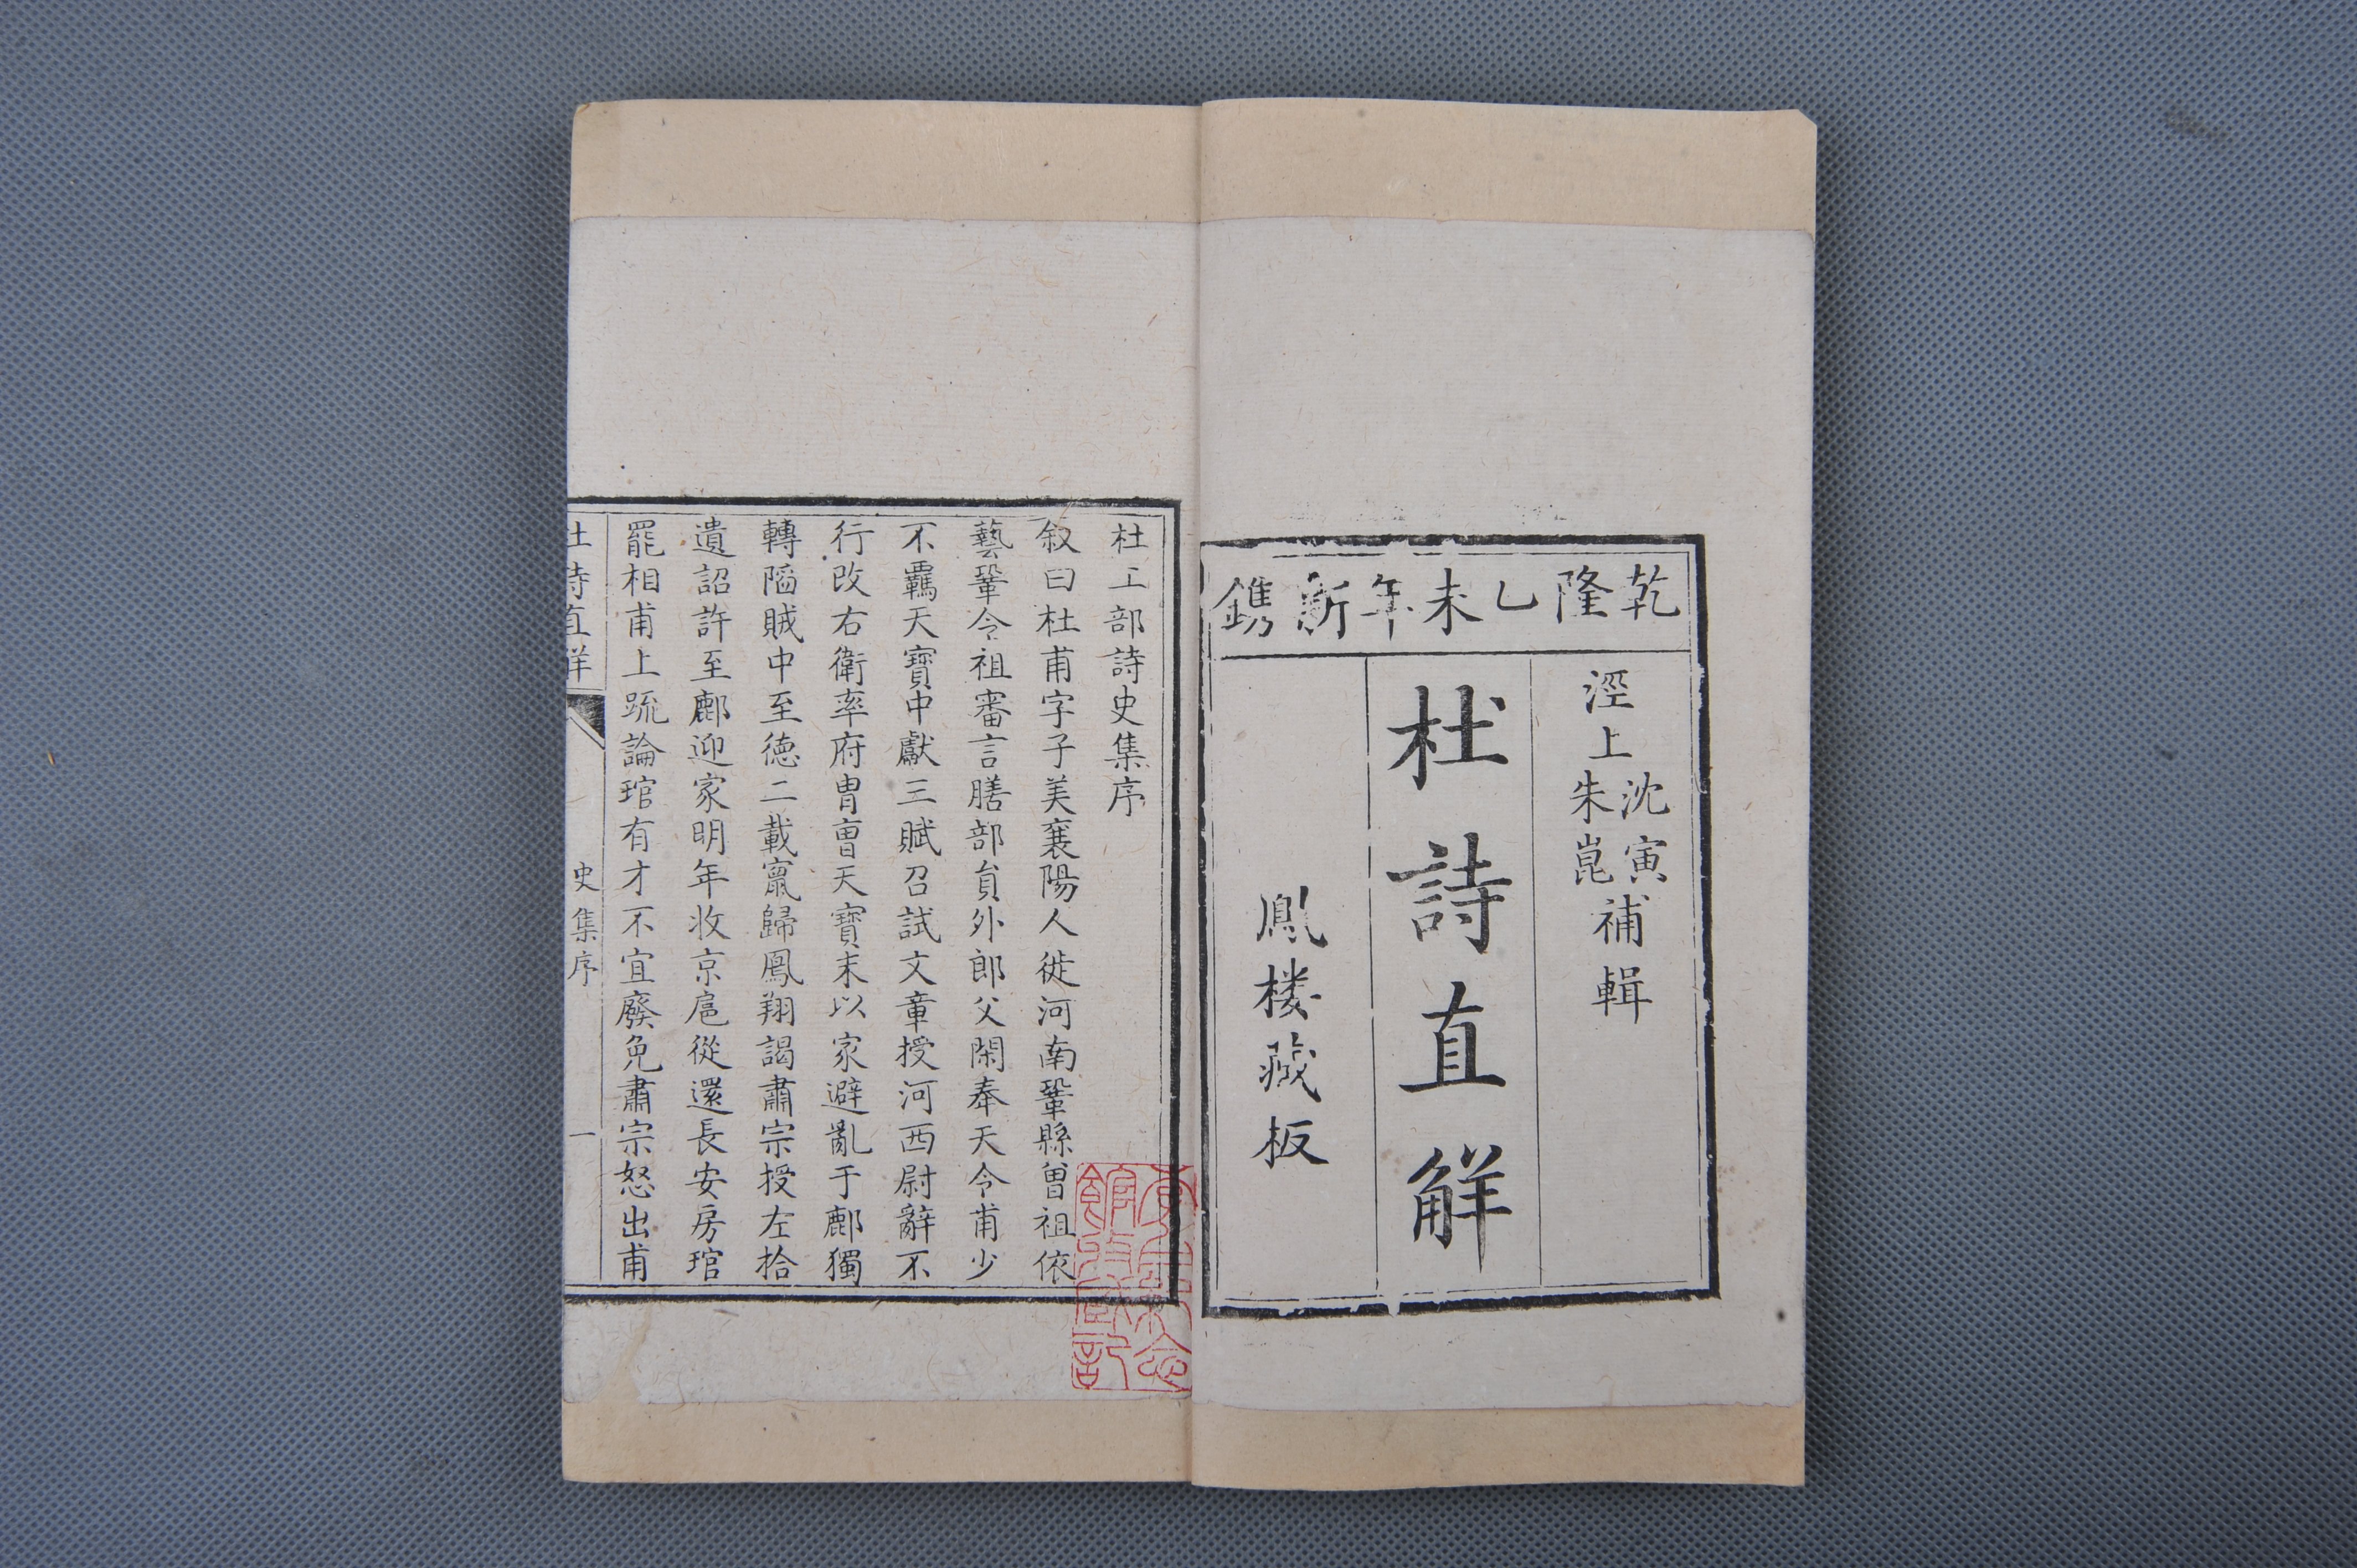 乾隆乙未年新鐫
涇上沈寅朱崑補輯
杜詩直解
鳳楼藏板
杜工部詩史集序
叙曰杜甫字子美襄陽人徙河南鞏縣曾祖依
藝鞏令祖審言膳部貟外郎父閑奉天令甫少
不羈天寶中獻三賦召試文章授河西尉辭不
行改右衛率府胄曹天寶末以家避亂于鄜獨
轉陷賊中至德二載竄歸鳳翔謁肅宗授左拾
遺詔許至鄜迎家明年收京扈從還長安房琯
罷相甫上䟽論琯有才不宜廢免肅宗怒出甫
杜詩直解
史集序
一